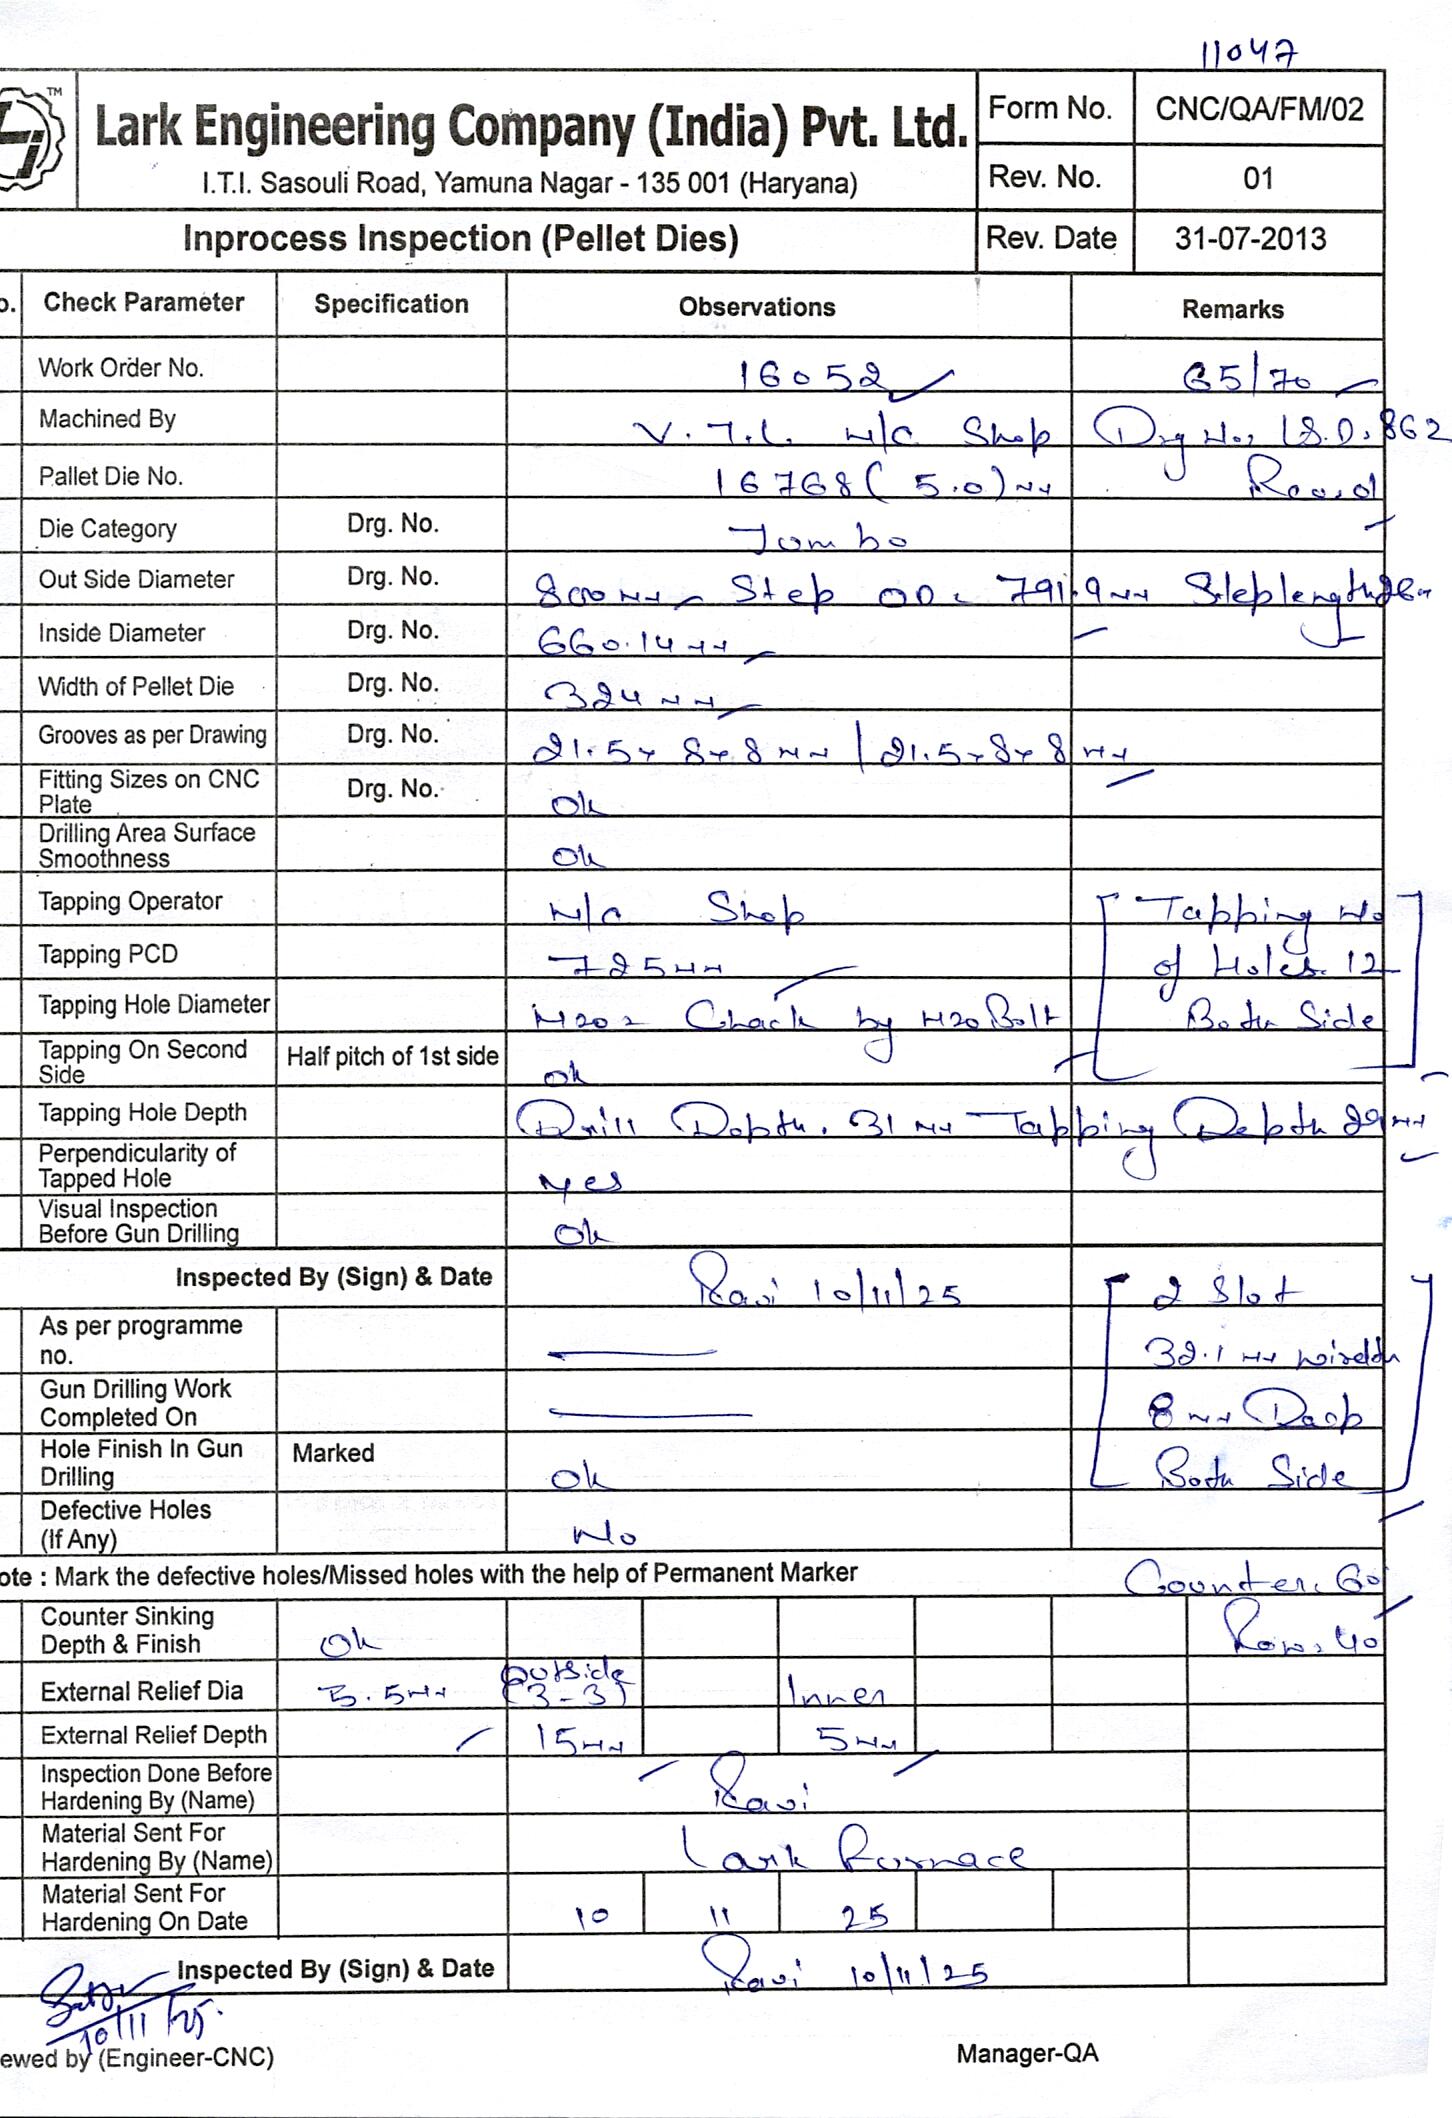 11047
TM
Lark Engineering Company (India) Pvt. Ltd.
Form No. CNC/QA/FM/02
I.T.I. Sasouli Road, Yamuna Nagar - 135 001 (Haryana)
Rev. No. 01
Inprocess Inspection (Pellet Dies)
Rev. Date 31-07-2013
o. Check Parameter Specification Observations Remarks
Work Order No. 16052 65/70
Machined By V.T.L. M/C Shop Drg No. LS.D. 862
Pallet Die No. 16768 (5.0) mm
Die Category Drg. No. Jombo
Out Side Diameter Drg. No. 800 mm Step OD. 791.9 mm Step length 26
Inside Diameter Drg. No. 660.14 mm
Width of Pellet Die Drg. No. 324 mm
Grooves as per Drawing Drg. No. 21.5 x 8 x 8 mm | 21.5 x 8 x 8 mm
Fitting Sizes on CNC
Plate Drg. No. Ok
Drilling Area Surface
Smoothness Ok
Tapping Operator M/C Shop Tapping No
Tapping PCD 725 mm of Holes. 12
Tapping Hole Diameter M20 = Chack by M20 Bolt Both Side
Tapping On Second
Side Half pitch of 1st side ok
Tapping Hole Depth Drill Depth. 31 mm Tapping Depth 29 mm
Perpendicularity of
Tapped Hole yes
Visual Inspection
Before Gun Drilling Ok
Inspected By (Sign) & Date Ravi 10/11/25 2 Slot
As per programme
no. 32.1 mm
Gun Drilling Work
Completed On 8 mm Deep
Hole Finish In Gun
Drilling Marked Ok Both Side
Defective Holes
(If Any) No
ote : Mark the defective holes/Missed holes with the help of Permanent Marker Counter. 60
Counter Sinking
Depth & Finish Ok Row. 40
External Relief Dia 5.5 mm Outside (3-3) Inner
External Relief Depth 15 mm 5 mm
Inspection Done Before
Hardening By (Name) Ravi
Material Sent For
Hardening By (Name) Lark Furnace
Material Sent For
Hardening On Date 10 11 25
Inspected By (Sign) & Date Ravi 10/11/25
10/11/25.
ewed by (Engineer-CNC) Manager-QA